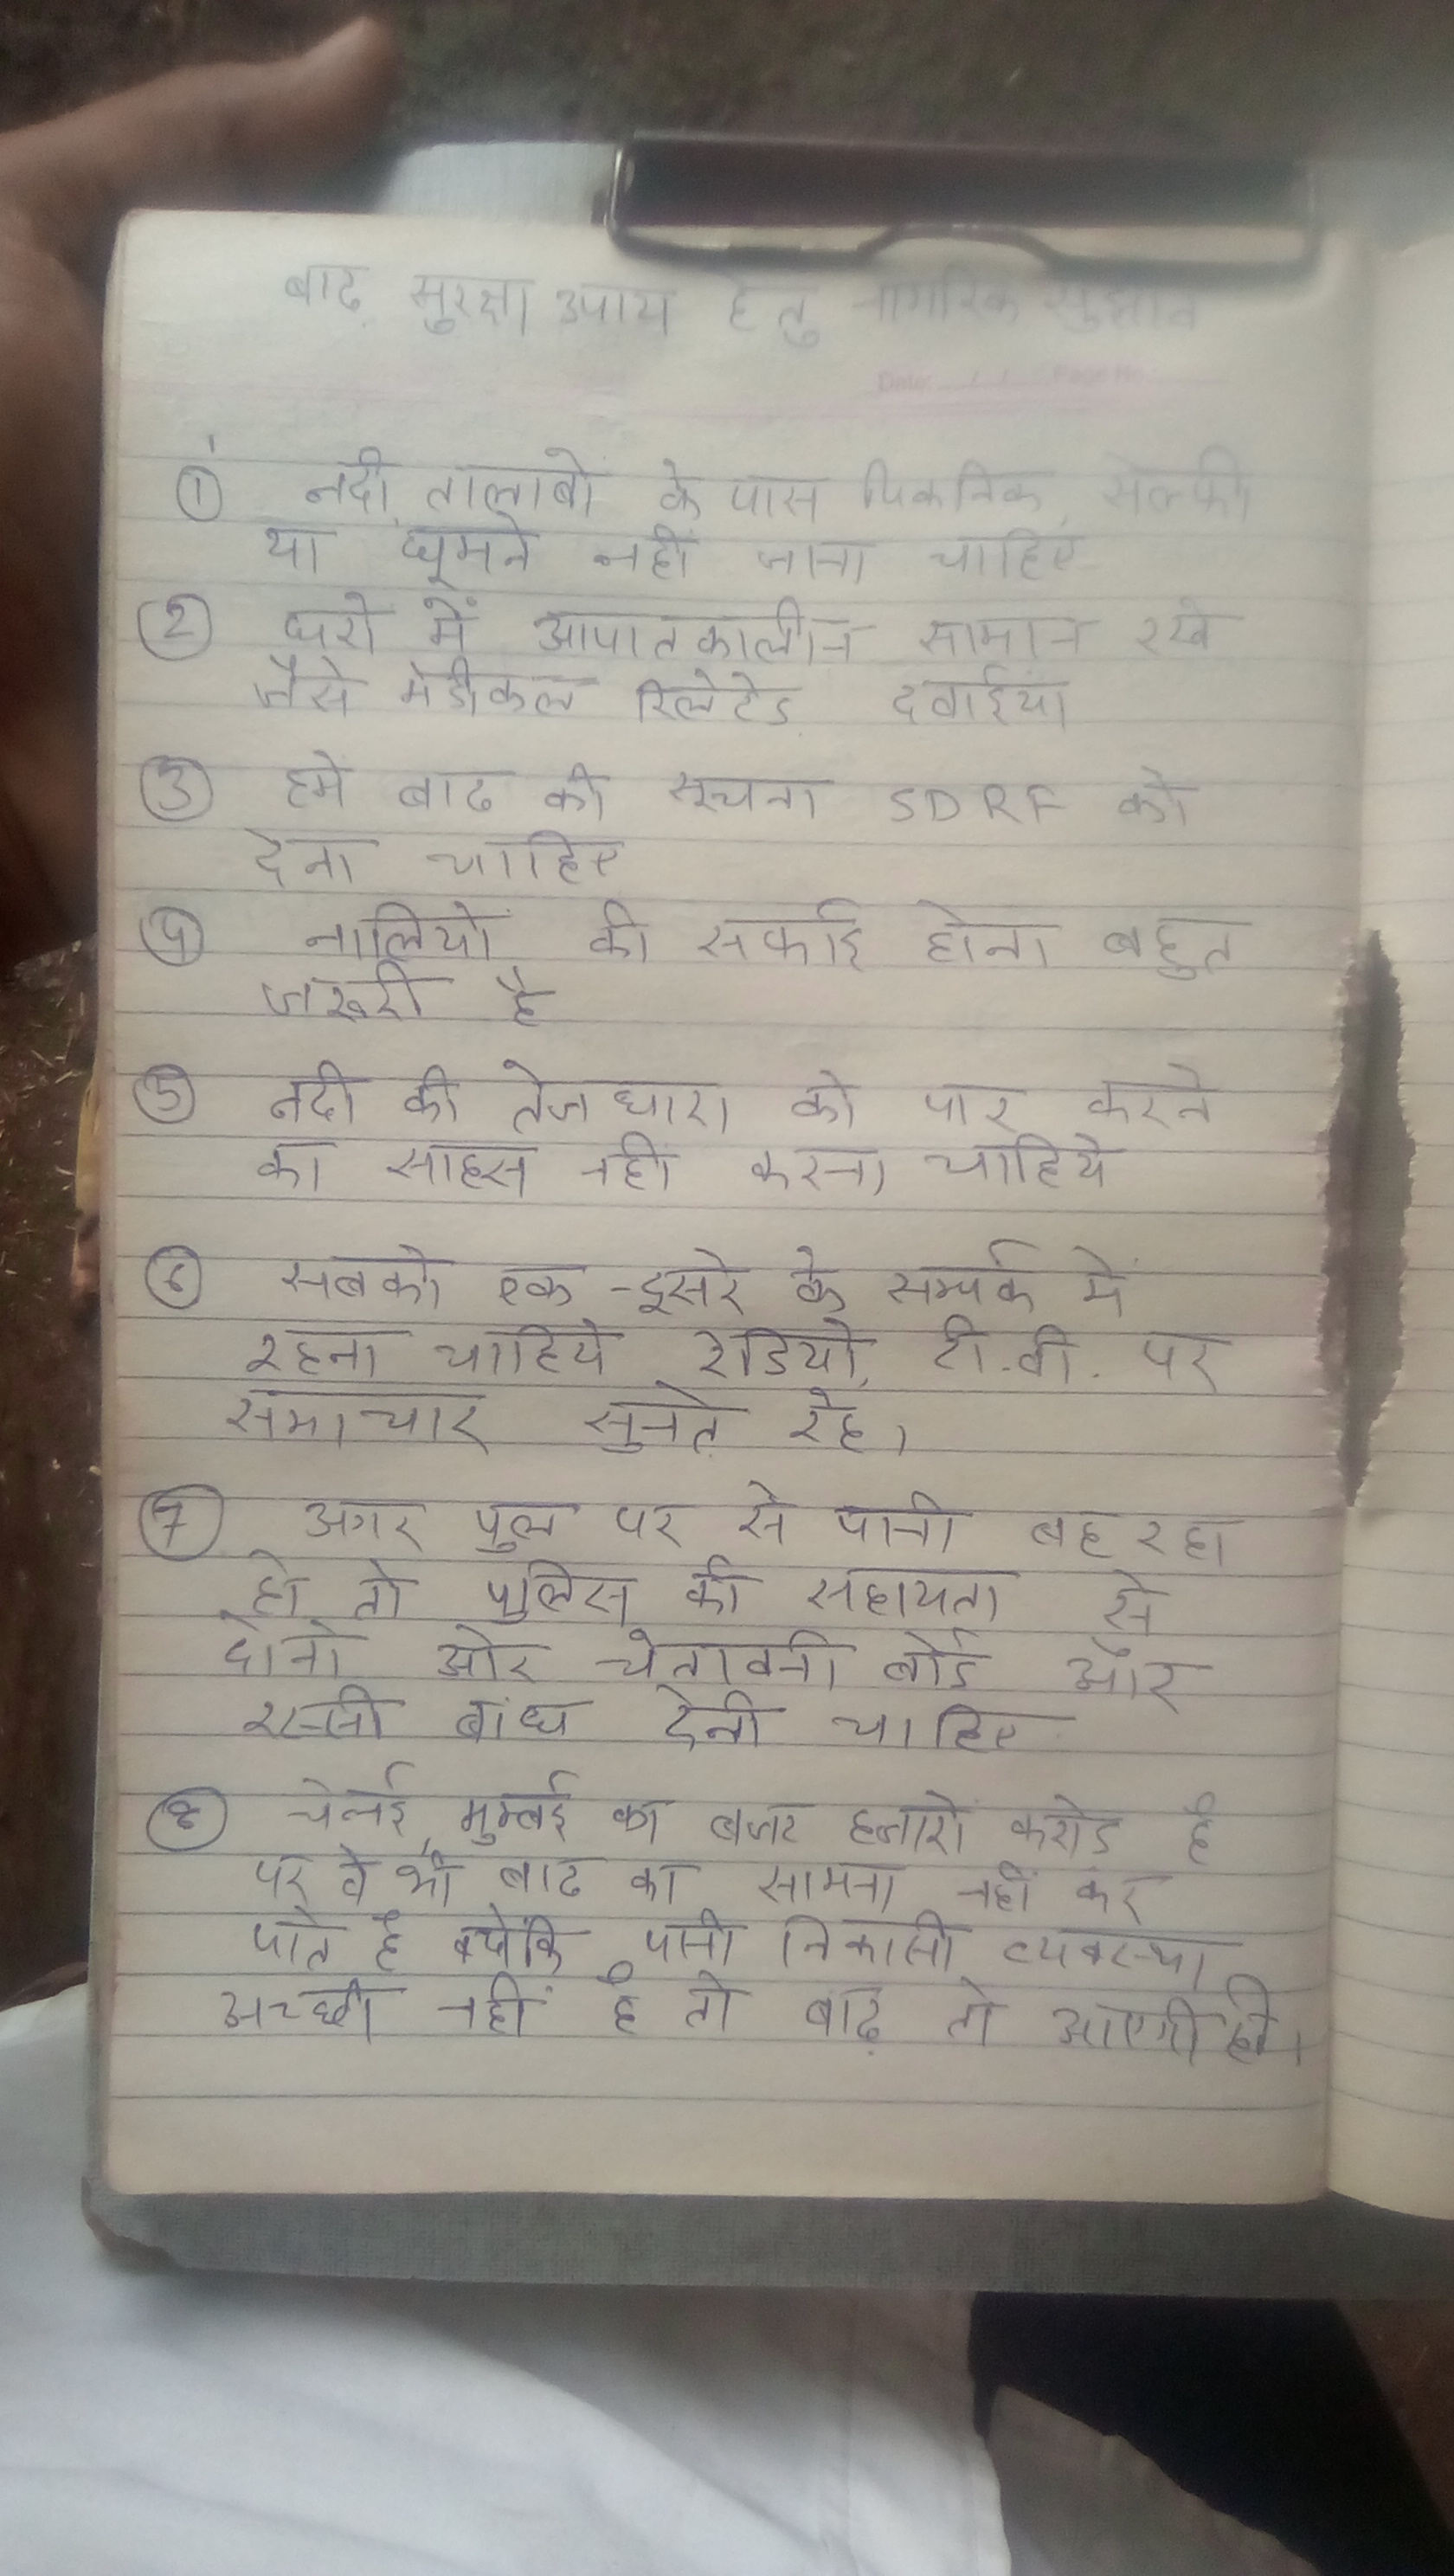 बाढ़ सुरक्षा उपाय हेतु नागरिक सुझाव
Date: __/__/__ Page No.
① नदी, तालाबो के पास पिकनिक, सेल्फी
या घूमने नहीं जाना चाहिए
② घरो में आपातकालीन सामान रखे
जैसे मेडीकल रिलेटेड दवाईयां
③ हमे बाढ की सूचना SDRF को
देना चाहिए
④ नालियों की सफाई होना बहुत
जरूरी है
⑤ नदी की तेज धारा को पार करने
का साहस नहीं करना चाहिये
⑥ सबको एक-दूसरे के सम्पर्क में
रहना चाहिये रेडियो, टी.वी. पर
समाचार सुनते रहे।
⑦ अगर पुल पर से पानी बह रहा
हो तो पुलिस की सहायता से
दोनो ओर चेतावनी बोर्ड और
रस्सी बांध देनी चाहिए
⑧ चेन्नई, मुम्बई का बजट हजारों करोड है
पर वे भी बाढ का सामना नहीं कर
पाते है क्योकि पानी निकासी व्यवस्था
अच्छी नहीं है तो बाढ़ तो आएगी ही।